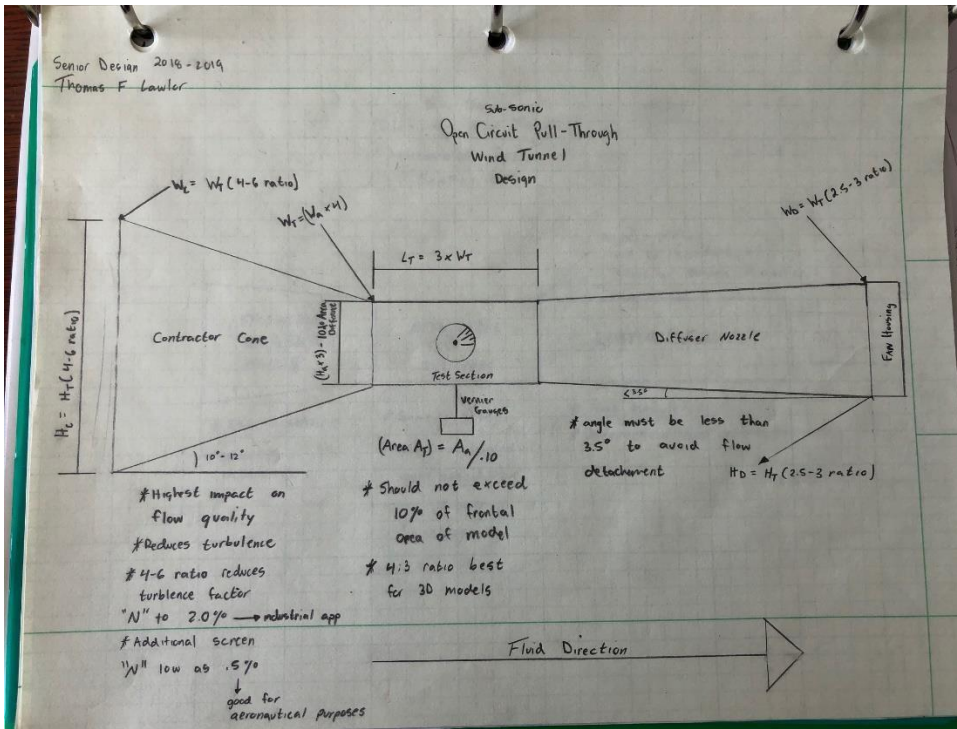 Senior Design 2018-2019
Thomas F Lawler
Sub-sonic
Open Circuit Pull-Through
Wind Tunnel
Design
W_C = W_T (4-6 ratio)
W_T = (W_a × 4)
L_T = 3 × W_T
W_D = W_T (2.5-3 ratio)
H_C = H_T (4-6 ratio)
Contractor Cone
(H_a × 3) - 10% Area
Test Section
Diffuser Nozzle
FAN Housing
Vernier
Gauges
(Area A_T) = A_a/.10
10°-12°
≤3.5°
* angle must be less than
3.5° to avoid flow
detachment
H_D = H_T (2.5-3 ratio)
* Highest impact on
flow quality
* Reduces turbulence
* 4-6 ratio reduces
turblence factor
"N" to 2.0% → industrial app
* Additional screen
"N" low as .5%
↓
good for
aeronautical purposes
* Should not exceed
10% of frontal
area of model
* 4:3 ratio best
for 3D models
Fluid Direction